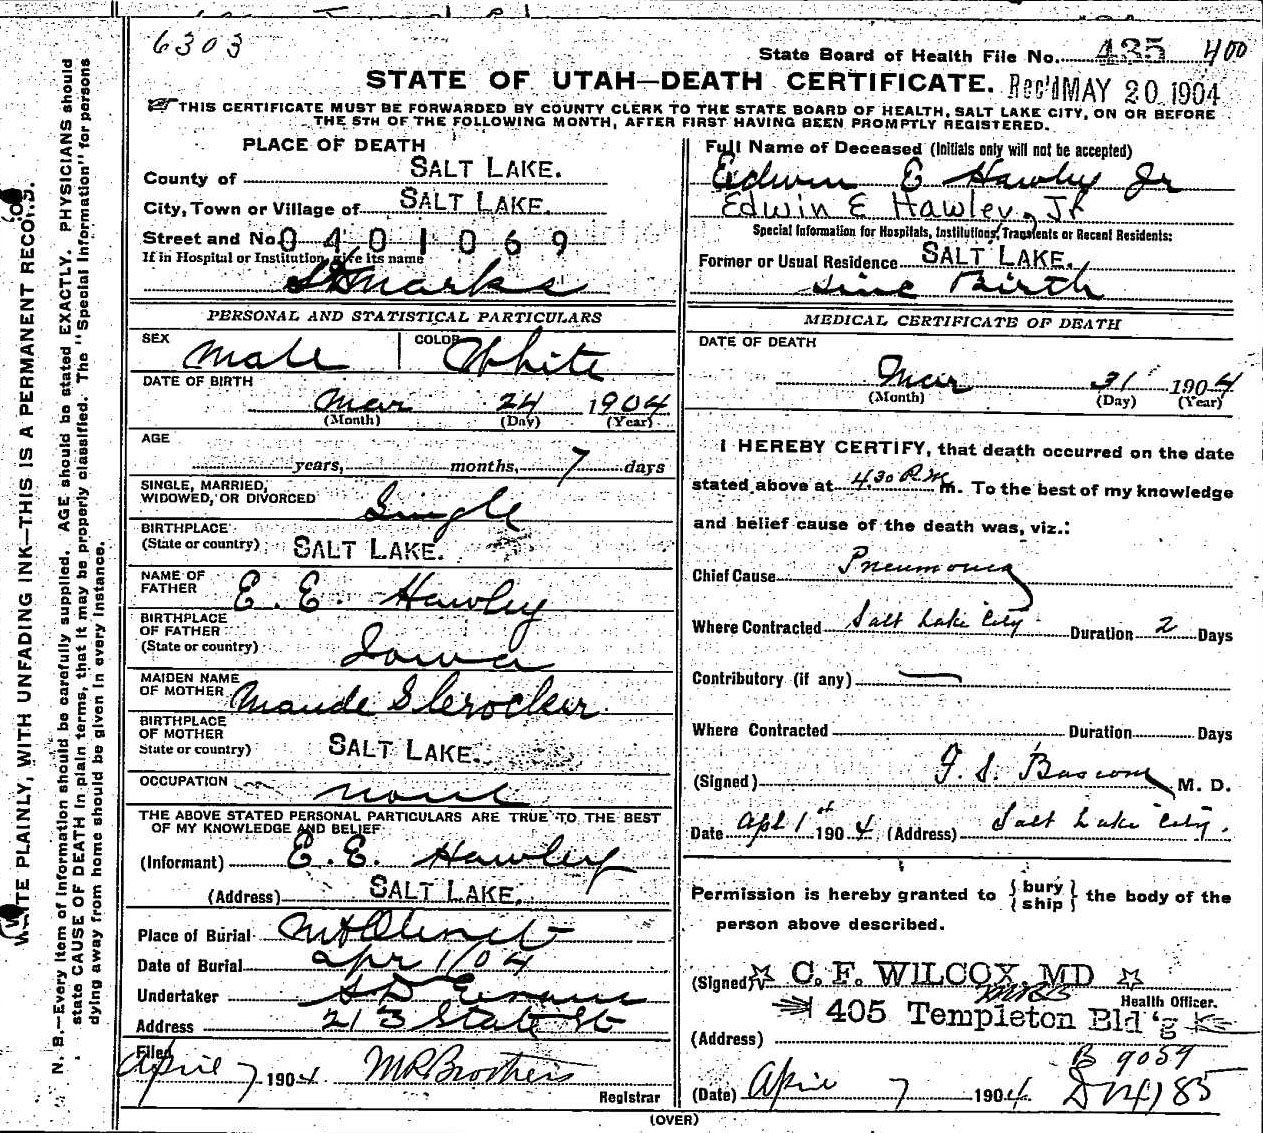 6303
State Board of Health File No. 435 400
STATE OF UTAH—DEATH CERTIFICATE. Rec'd MAY 20 1904
THIS CERTIFICATE MUST BE FORWARDED BY COUNTY CLERK TO THE STATE BOARD OF HEALTH, SALT LAKE CITY, ON OR BEFORE
THE 5TH OF THE FOLLOWING MONTH, AFTER FIRST HAVING BEEN PROMPTLY REGISTERED.
PLACE OF DEATH
County of SALT LAKE.
City, Town or Village of SALT LAKE.
Street and No. 0401069
If in Hospital or Institution, give its name
St Marks
PERSONAL AND STATISTICAL PARTICULARS
SEX Male COLOR White
DATE OF BIRTH
Mar 24 1904
(Month) (Day) (Year)
AGE
years, months, 7 days
SINGLE, MARRIED,
WIDOWED, OR DIVORCED Single
BIRTHPLACE
(State or country) SALT LAKE.
NAME OF
FATHER E. E. Hawley
BIRTHPLACE
OF FATHER
(State or country) Iowa
MAIDEN NAME
OF MOTHER Maude Slerocker
BIRTHPLACE
OF MOTHER
State or country) SALT LAKE.
OCCUPATION none
THE ABOVE STATED PERSONAL PARTICULARS ARE TRUE TO THE BEST
OF MY KNOWLEDGE AND BELIEF
(Informant) E. E. Hawley
(Address) SALT LAKE.
Place of Burial Mt Olivet
Date of Burial apr 1/04
Undertaker S D Evans
Address 213 State St
Filed
April 7 1904 M R Brothers
Registrar
Full Name of Deceased (Initials only will not be accepted)
Edwin E Hawley Jr
Edwin E Hawley, Jr
Special Information for Hospitals, Institutions, Transients or Recent Residents:
Former or Usual Residence SALT LAKE.
sinc Birth
MEDICAL CERTIFICATE OF DEATH
DATE OF DEATH
Mar 31 1904
(Month) (Day) (Year)
I HEREBY CERTIFY, that death occurred on the date
stated above at 4 30 P.M. M. To the best of my knowledge
and belief cause of the death was, viz.:
Chief Cause Pneumonia
Where Contracted Salt Lake City. Duration 2 Days
Contributory (if any) —
Where Contracted Duration Days
(Signed) F. S. Bascom M. D.
Date Apl 1st 1904 (Address) Salt Lake City.
Permission is hereby granted to {bury
ship} the body of the
person above described.
(Signed) C. F. WILCOX, MD
Health Officer.
405 Templeton Bld'g
(Address)
B 9059
(Date) April 7 1904. D 14185
(OVER)
WRITE PLAINLY, WITH UNFADING INK—THIS IS A PERMANENT RECORD.
N. B.—Every item of information should be carefully supplied. AGE should be stated EXACTLY. PHYSICIANS should
state CAUSE OF DEATH in plain terms, that it may be properly classified. The "Special Information" for persons
dying away from home should be given in every instance.